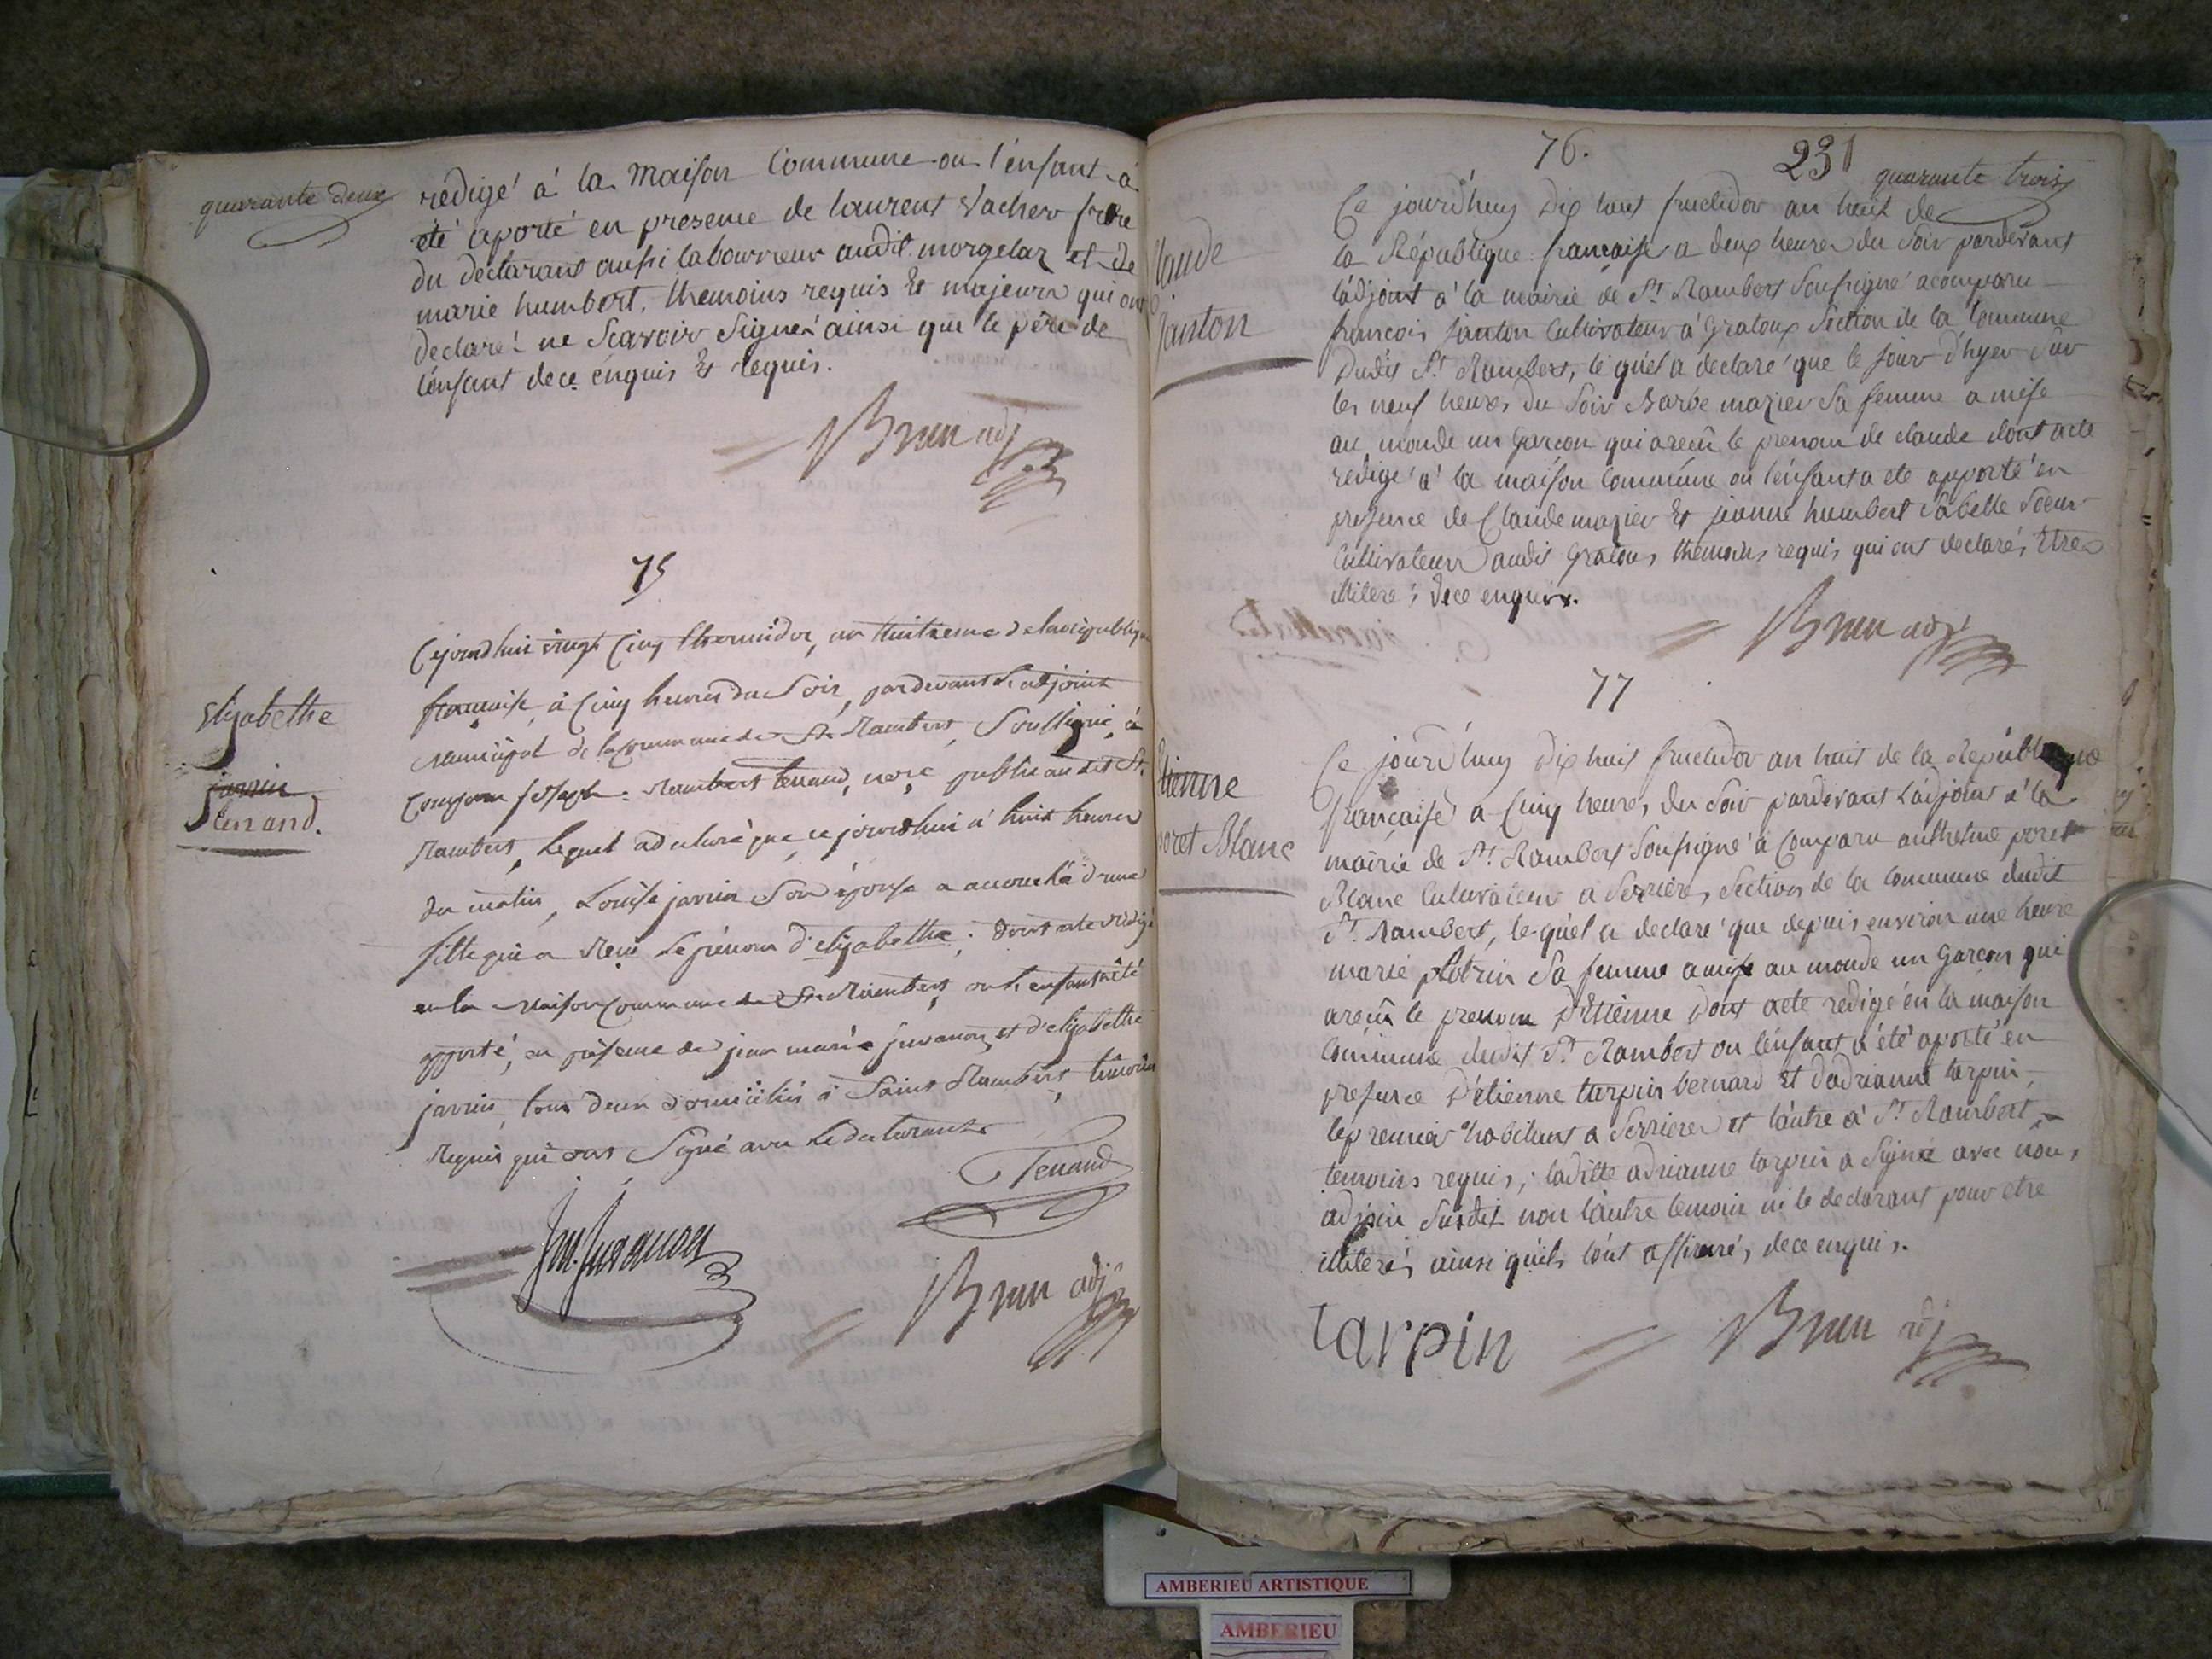 quarante deux
rédigé à la maison Commune ou l'enfant à
été aporté en presence de laurent Vacher frere
du declarant aussi labourreur audit morgelaz et de
marie humbert, themoins requis Et majeurs qui ont
declaré ne Scavoir Signer ainsi que le père de
l'enfant de ce enquis Et requis.
Brun adj
75
Elizabethe
jarrin
tenand.
Cejourdhui vingt Cinq thermidor, an huitieme de la république
française, à Cinq heures du Soir, pardevant L'adjoint
Municipal de la Commune de St Rambert, Soussigné, à
Comparu joseph Rambert tenand, nore public audit St
Rambert, Lequel a declaré que ce jourdhui à huit heures
du matin, Louise jarrin Son épouse a accouché d'une
fille qui a Reçu Le prénom d'elizabethe; Dont acte rédigé
en la Maison Commune de St Rambert, ou L'enfant à été
apporté, en présence de jean marie juvanon, et d'elizabethe
jarrin, tous deux domiciliés à Saint Rambert, témoins
Requis qui ont Signé avec Le declarant
Tenand
Jm. Juvanon
Brun adj
76.
231
quarante trois
Claude
janton
Ce jourd'huy Dix huit fructidor an huit de
la République française a deux heures du Soir pardevant
l'adjoint à la mairie de St Rambert Soussigné a comparu
françois janton Cultivateur à Gratoux Section de la Commune
Dudit St Rambert, lequel a declaré que le jour d'hyer Sur
les neuf heures du Soir Barbe mazier Sa femme a mise
au monde un garcon qui a recû le prenom de claude dont acte
redigé à la maison Commune ou l'enfant a eté apporté en
presence de Claude mazier Et jeanne humbert Sa belle Soeur
Cultivateurs audit Gratoux themoins requis qui ont declarés Etre
illiteré; de ce enquis.
Brun adj
77
Etienne
poret Blanc
Ce jourd'huy dix huit fructidor an huit de la République
française a Cinq heures du Soir pardevant L'adjoint à la
mairie de St Rambert Soussigné à Comparu anthelme poret
Blanc Cultivateur a Serrieres Section de la Commune dudit
St Rambert, lequel a declaré que depuis environ une heure
marie plotrin Sa femme a mise au monde un Garcon qui
a recû le prenom D'Etienne Dont acte redigé en la maison
Commune dudit St Rambert ou l'enfant a été aporté en
presence D'étienne tarpin bernard Et d'adrianne tarpin,
le premier habitant a Serrieres et l'autre à St Rambert,
temoins requis; laditte adrianne tarpin a Signé avec nous
adjoin Susdit non l'autre temoin ni le declarant pour etre
illiterés ainsi qu'ils l'ont affirmés de ce enquis.
tarpin
Brun adj
AMBERIEU ARTISTIQUE
AMBERIEU